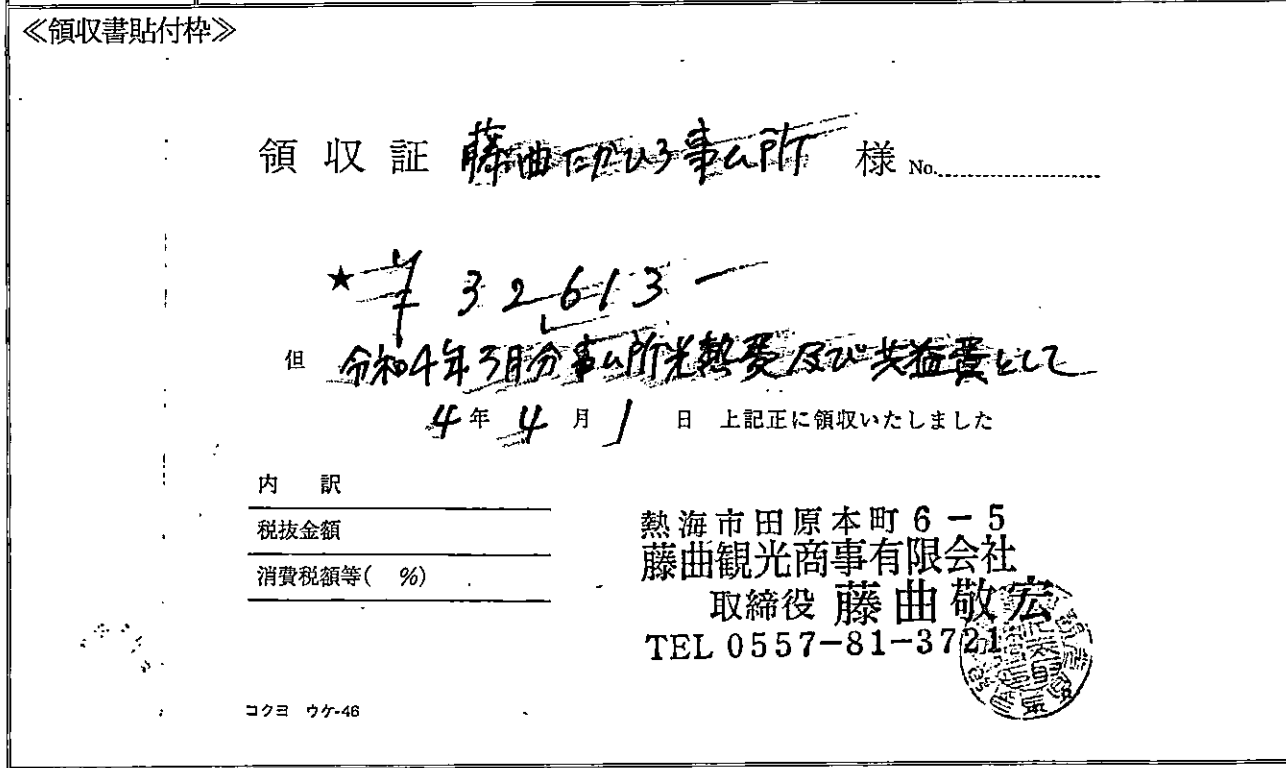 ≪領収書貼付枠≫
領収証 藤曲たかひろ事ム所 様 No.
★ ¥32,613ー
但 令和4年3月分事ム所光熱費及び共益費として
4年4月1日 上記正に領収いたしました
内 訳
税抜金額
消費税額等( %)
熱海市田原本町6-5
藤曲観光商事有限会社
取締役 藤曲敬宏
TEL 0557-81-3721
コクヨ ウケ-46